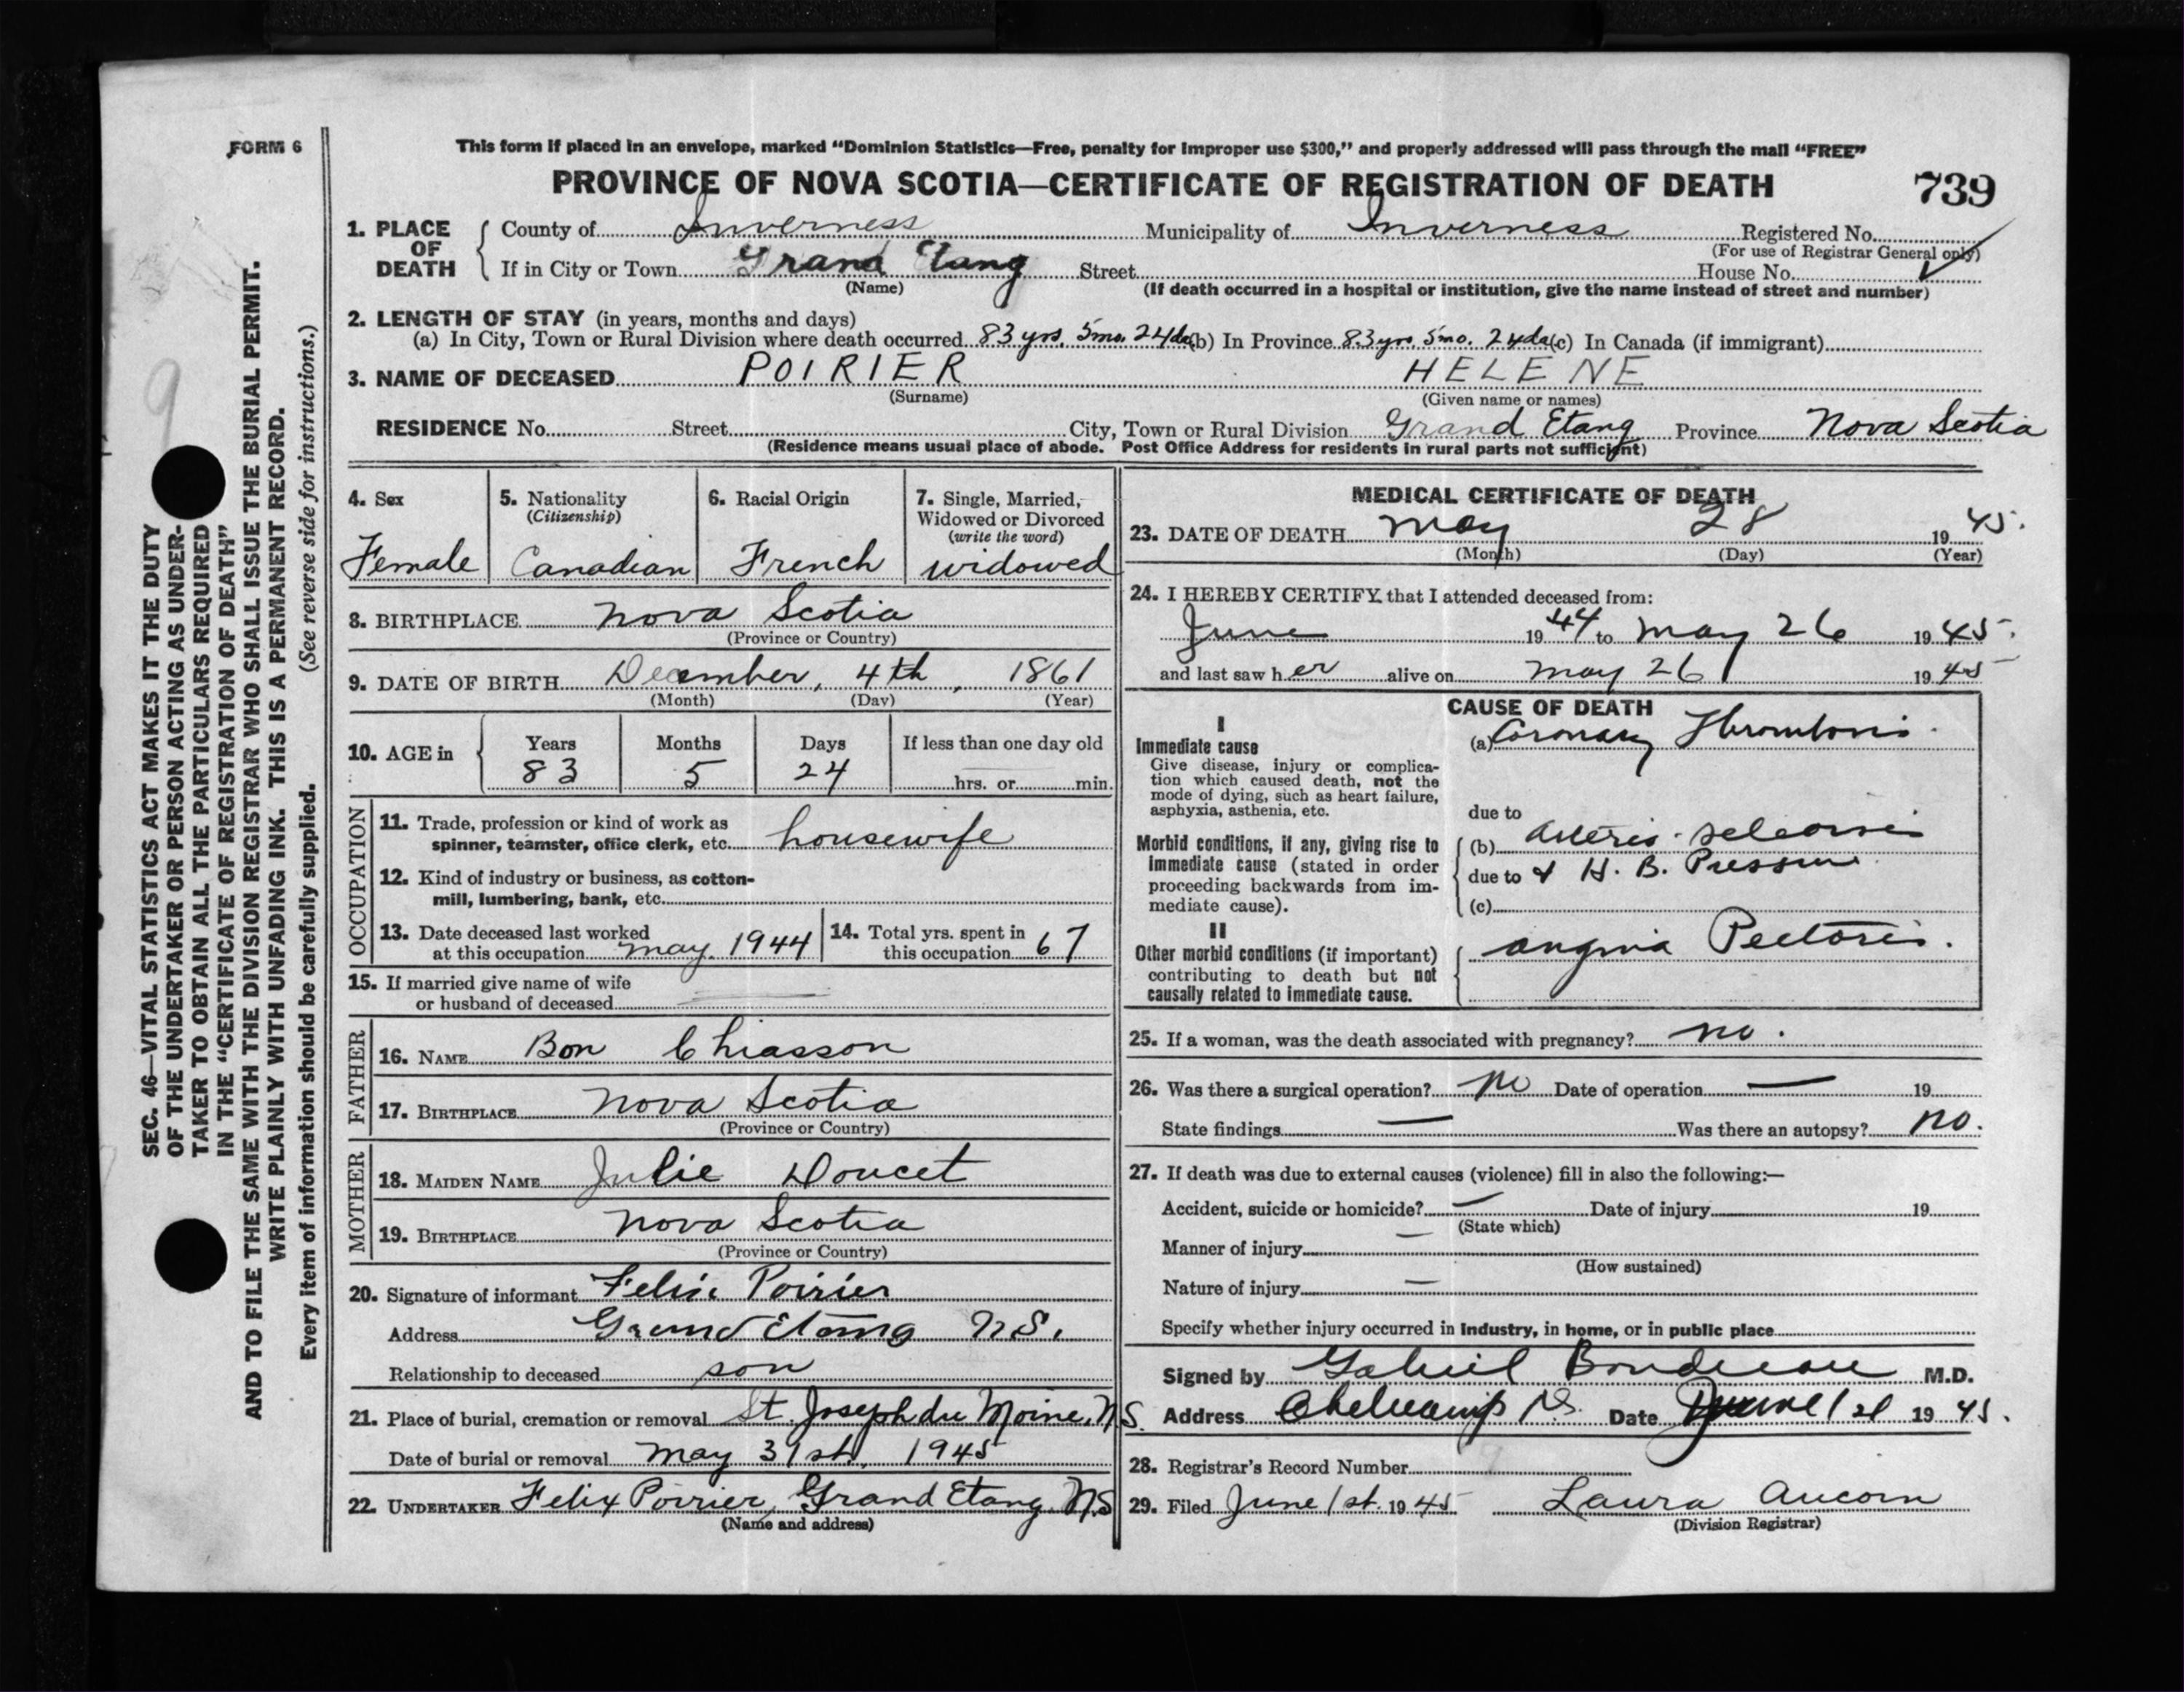 FORM 6
This form if placed in an envelope, marked “Dominion Statistics—Free, penalty for improper use $300,” and properly addressed will pass through the mail “FREE”
PROVINCE OF NOVA SCOTIA—CERTIFICATE OF REGISTRATION OF DEATH 739
1. PLACE OF DEATH County of Inverness Municipality of Inverness Registered No.
(For use of Registrar General only)
If in City or Town Grand Etang Street House No.
(Name) (If death occurred in a hospital or institution, give the name instead of street and number)
2. LENGTH OF STAY (in years, months and days)
(a) In City, Town or Rural Division where death occurred 83 yrs. 5 mo. 24 da (b) In Province 83 yrs 5 mo. 24 da (c) In Canada (if immigrant)
3. NAME OF DECEASED POIRIER HELENE
(Surname) (Given name or names)
RESIDENCE No. Street City, Town or Rural Division Grand Etang Province Nova Scotia
(Residence means usual place of abode. Post Office Address for residents in rural parts not sufficient)
4. Sex
Female
5. Nationality
(Citizenship)
Canadian
6. Racial Origin
French
7. Single, Married,
Widowed or Divorced
(write the word)
widowed
8. BIRTHPLACE Nova Scotia
(Province or Country)
9. DATE OF BIRTH December, 4th, 1861
(Month) (Day) (Year)
10. AGE in Years Months Days If less than one day old
83 5 24 hrs. or min.
OCCUPATION
11. Trade, profession or kind of work as
spinner, teamster, office clerk, etc. housewife
12. Kind of industry or business, as cotton-
mill, lumbering, bank, etc.
13. Date deceased last worked
at this occupation May. 1944
14. Total yrs. spent in
this occupation 67
15. If married give name of wife
or husband of deceased
FATHER
16. NAME Bon Chiasson
17. BIRTHPLACE Nova Scotia
(Province or Country)
MOTHER
18. MAIDEN NAME Julie Doucet
19. BIRTHPLACE Nova Scotia
(Province or Country)
20. Signature of informant Felix Poirier
Address Grand Etang N.S.
Relationship to deceased son
21. Place of burial, cremation or removal St. Joseph du Moine, N.S.
Date of burial or removal May 31st, 1945
22. UNDERTAKER Felix Poirier, Grand Etang N.S
(Name and address)
MEDICAL CERTIFICATE OF DEATH
23. DATE OF DEATH May 28 1945.
(Month) (Day) (Year)
24. I HEREBY CERTIFY that I attended deceased from:
June 1944 to May 26 1945.
and last saw her alive on May 26 1945
CAUSE OF DEATH
I
Immediate cause
Give disease, injury or complica-
tion which caused death, not the
mode of dying, such as heart failure,
asphyxia, asthenia, etc.
(a) Coronary Thrombosis.
due to
Morbid conditions, if any, giving rise to
immediate cause (stated in order
proceeding backwards from im-
mediate cause).
(b) Arterio-sclerosis
due to & H. B. Pressure.
(c)
II
Other morbid conditions (if important)
contributing to death but not
causally related to immediate cause.
Angina Pectoris.
25. If a woman, was the death associated with pregnancy? no.
26. Was there a surgical operation? No Date of operation — 19
State findings — Was there an autopsy? no.
27. If death was due to external causes (violence) fill in also the following:—
Accident, suicide or homicide? — Date of injury 19
(State which)
Manner of injury —
(How sustained)
Nature of injury —
Specify whether injury occurred in industry, in home, or in public place
Signed by Gabriel Boudreau M.D.
Address Cheticamp N.S. Date June 1st 1945.
28. Registrar's Record Number 9
29. Filed June 1st. 1945 Laura Aucoin
(Division Registrar)
SEC. 46—VITAL STATISTICS ACT MAKES IT THE DUTY
OF THE UNDERTAKER OR PERSON ACTING AS UNDER-
TAKER TO OBTAIN ALL THE PARTICULARS REQUIRED
IN THE “CERTIFICATE OF REGISTRATION OF DEATH”
AND TO FILE THE SAME WITH THE DIVISION REGISTRAR WHO SHALL ISSUE THE BURIAL PERMIT.
WRITE PLAINLY WITH UNFADING INK. THIS IS A PERMANENT RECORD.
Every item of information should be carefully supplied. (See reverse side for instructions.)
9